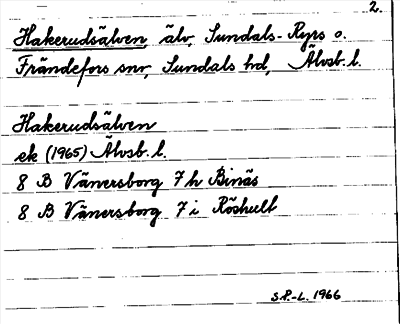 2.
Hakerudsälven, älv, Sundals-Ryrs o.
Frändefors snr, Sundals hd, Älvsb. l.
Hakerudsälven
ek (1965) Älvsb. l.
8 B Vänersborg 7 h Binäs
8 B Vänersborg 7 i Röshult
S.P.-L. 1966